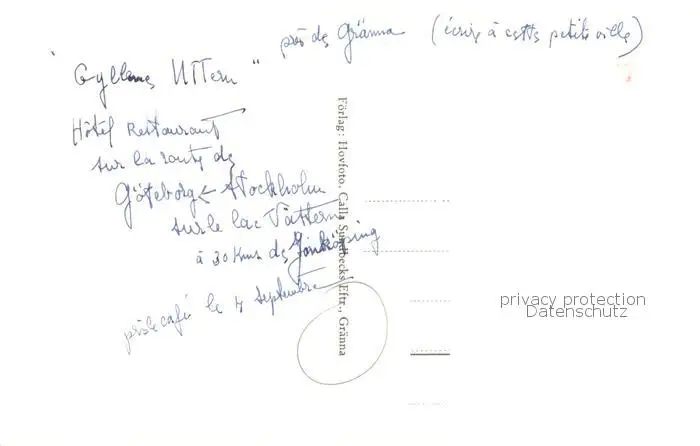 près de Gränna (écrire à cette petite ville)
"Gyllene Uttern"
Hôtel Restaurant
sur la route de
Göteborg ← Stockholm
sur le lac Vättern
à 30 Kms de Jönköping
pris le café le 4 septembre
Förlag: Hovfoto, Calla Sundbecks Eftr., Gränna
privacy protection
Datenschutz